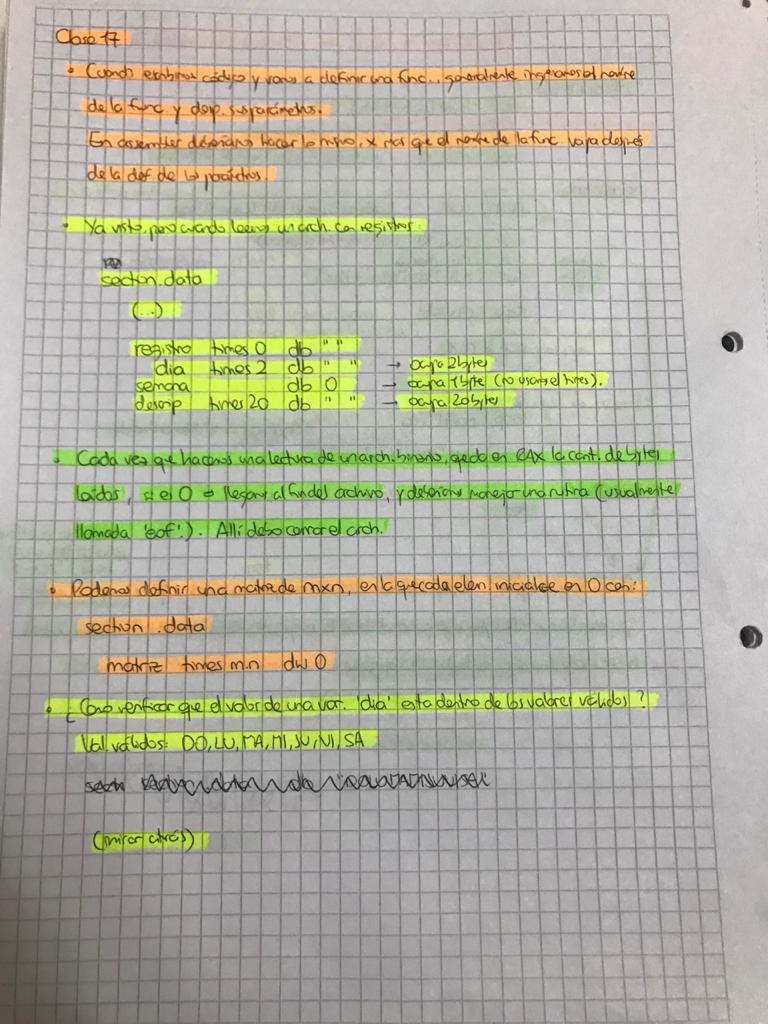 Clase 17
• Cuando escribimos código y vamos a definir una func., generalmente ingresamos el nombre
de la func y desp. sus parámetros.
En assembler deberíamos hacer lo mismo, x más que el nombre de la func vaya después
de la def de los parámetros.
• Ya visto, pero cuando leemos un arch. con registros:
section .data
(...)
registro times 0 db " "
dia times 2 db " " → ocupa 2 bytes
semana db 0 → ocupa 1 byte (no usamos el times).
descrip times 20 db " " → ocupa 20 bytes
• Cada vez que hacemos una lectura de un arch. binario, queda en RAX la cant. de bytes
leídos, si es 0 ⇒ llegamos al fin del archivo, y deberíamos manejar una rutina (usualmente
llamada 'eof'). Allí debo cerrar el arch.
• Podemos definir una matriz de mxn, en la que cada elem. inicialice en 0 con:
section .data
matriz times m.n dw 0
• ¿Cómo verificar que el valor de una var. 'dia' esta dentro de los valores válidos?
Val válidos: DO, LU, MA, MI, JU, VI, SA
(mirar atrás)